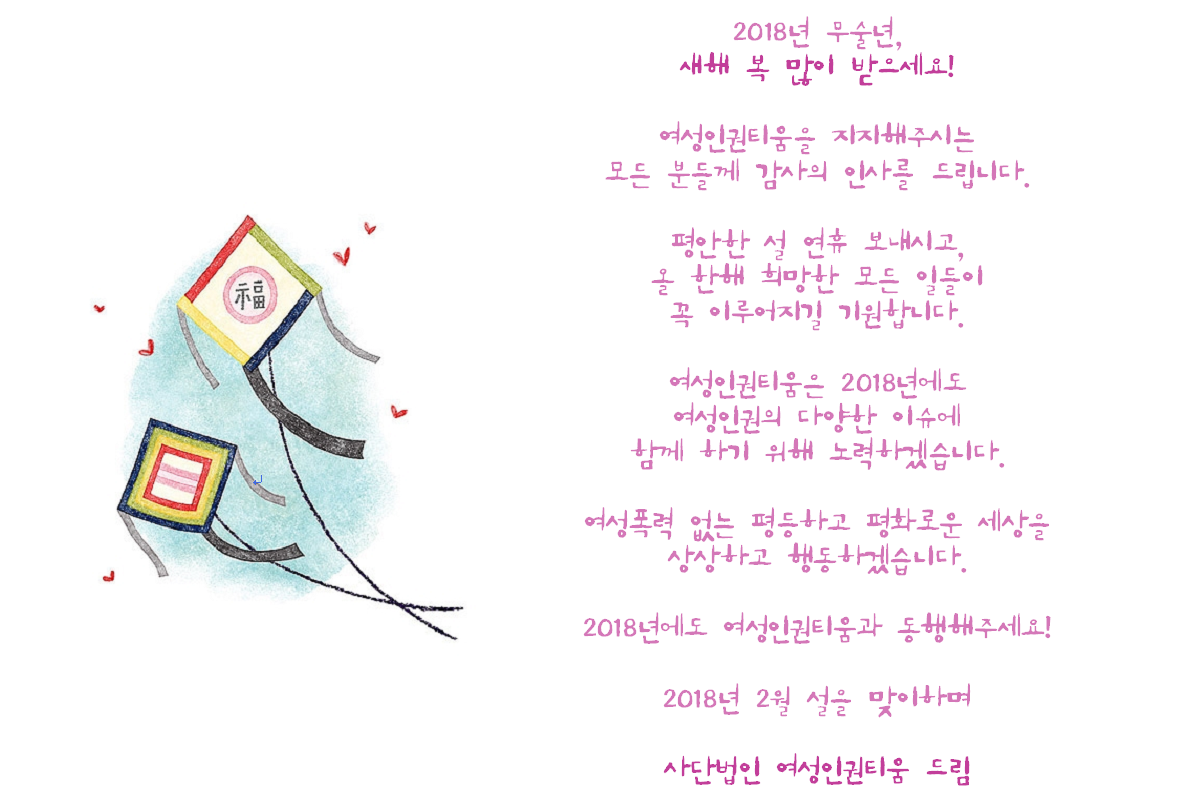 2018년 무술년,
새해 복 많이 받으세요!
여성인권티움을 지지해주시는
모든 분들께 감사의 인사를 드립니다.
평안한 설 연휴 보내시고,
올 한해 희망한 모든 일들이
꼭 이루어지길 기원합니다.
여성인권티움은 2018년에도
여성인권의 다양한 이슈에
함께 하기 위해 노력하겠습니다.
여성폭력 없는 평등하고 평화로운 세상을
상상하고 행동하겠습니다.
2018년에도 여성인권티움과 동행해주세요!
2018년 2월 설을 맞이하며
사단법인 여성인권티움 드림
福